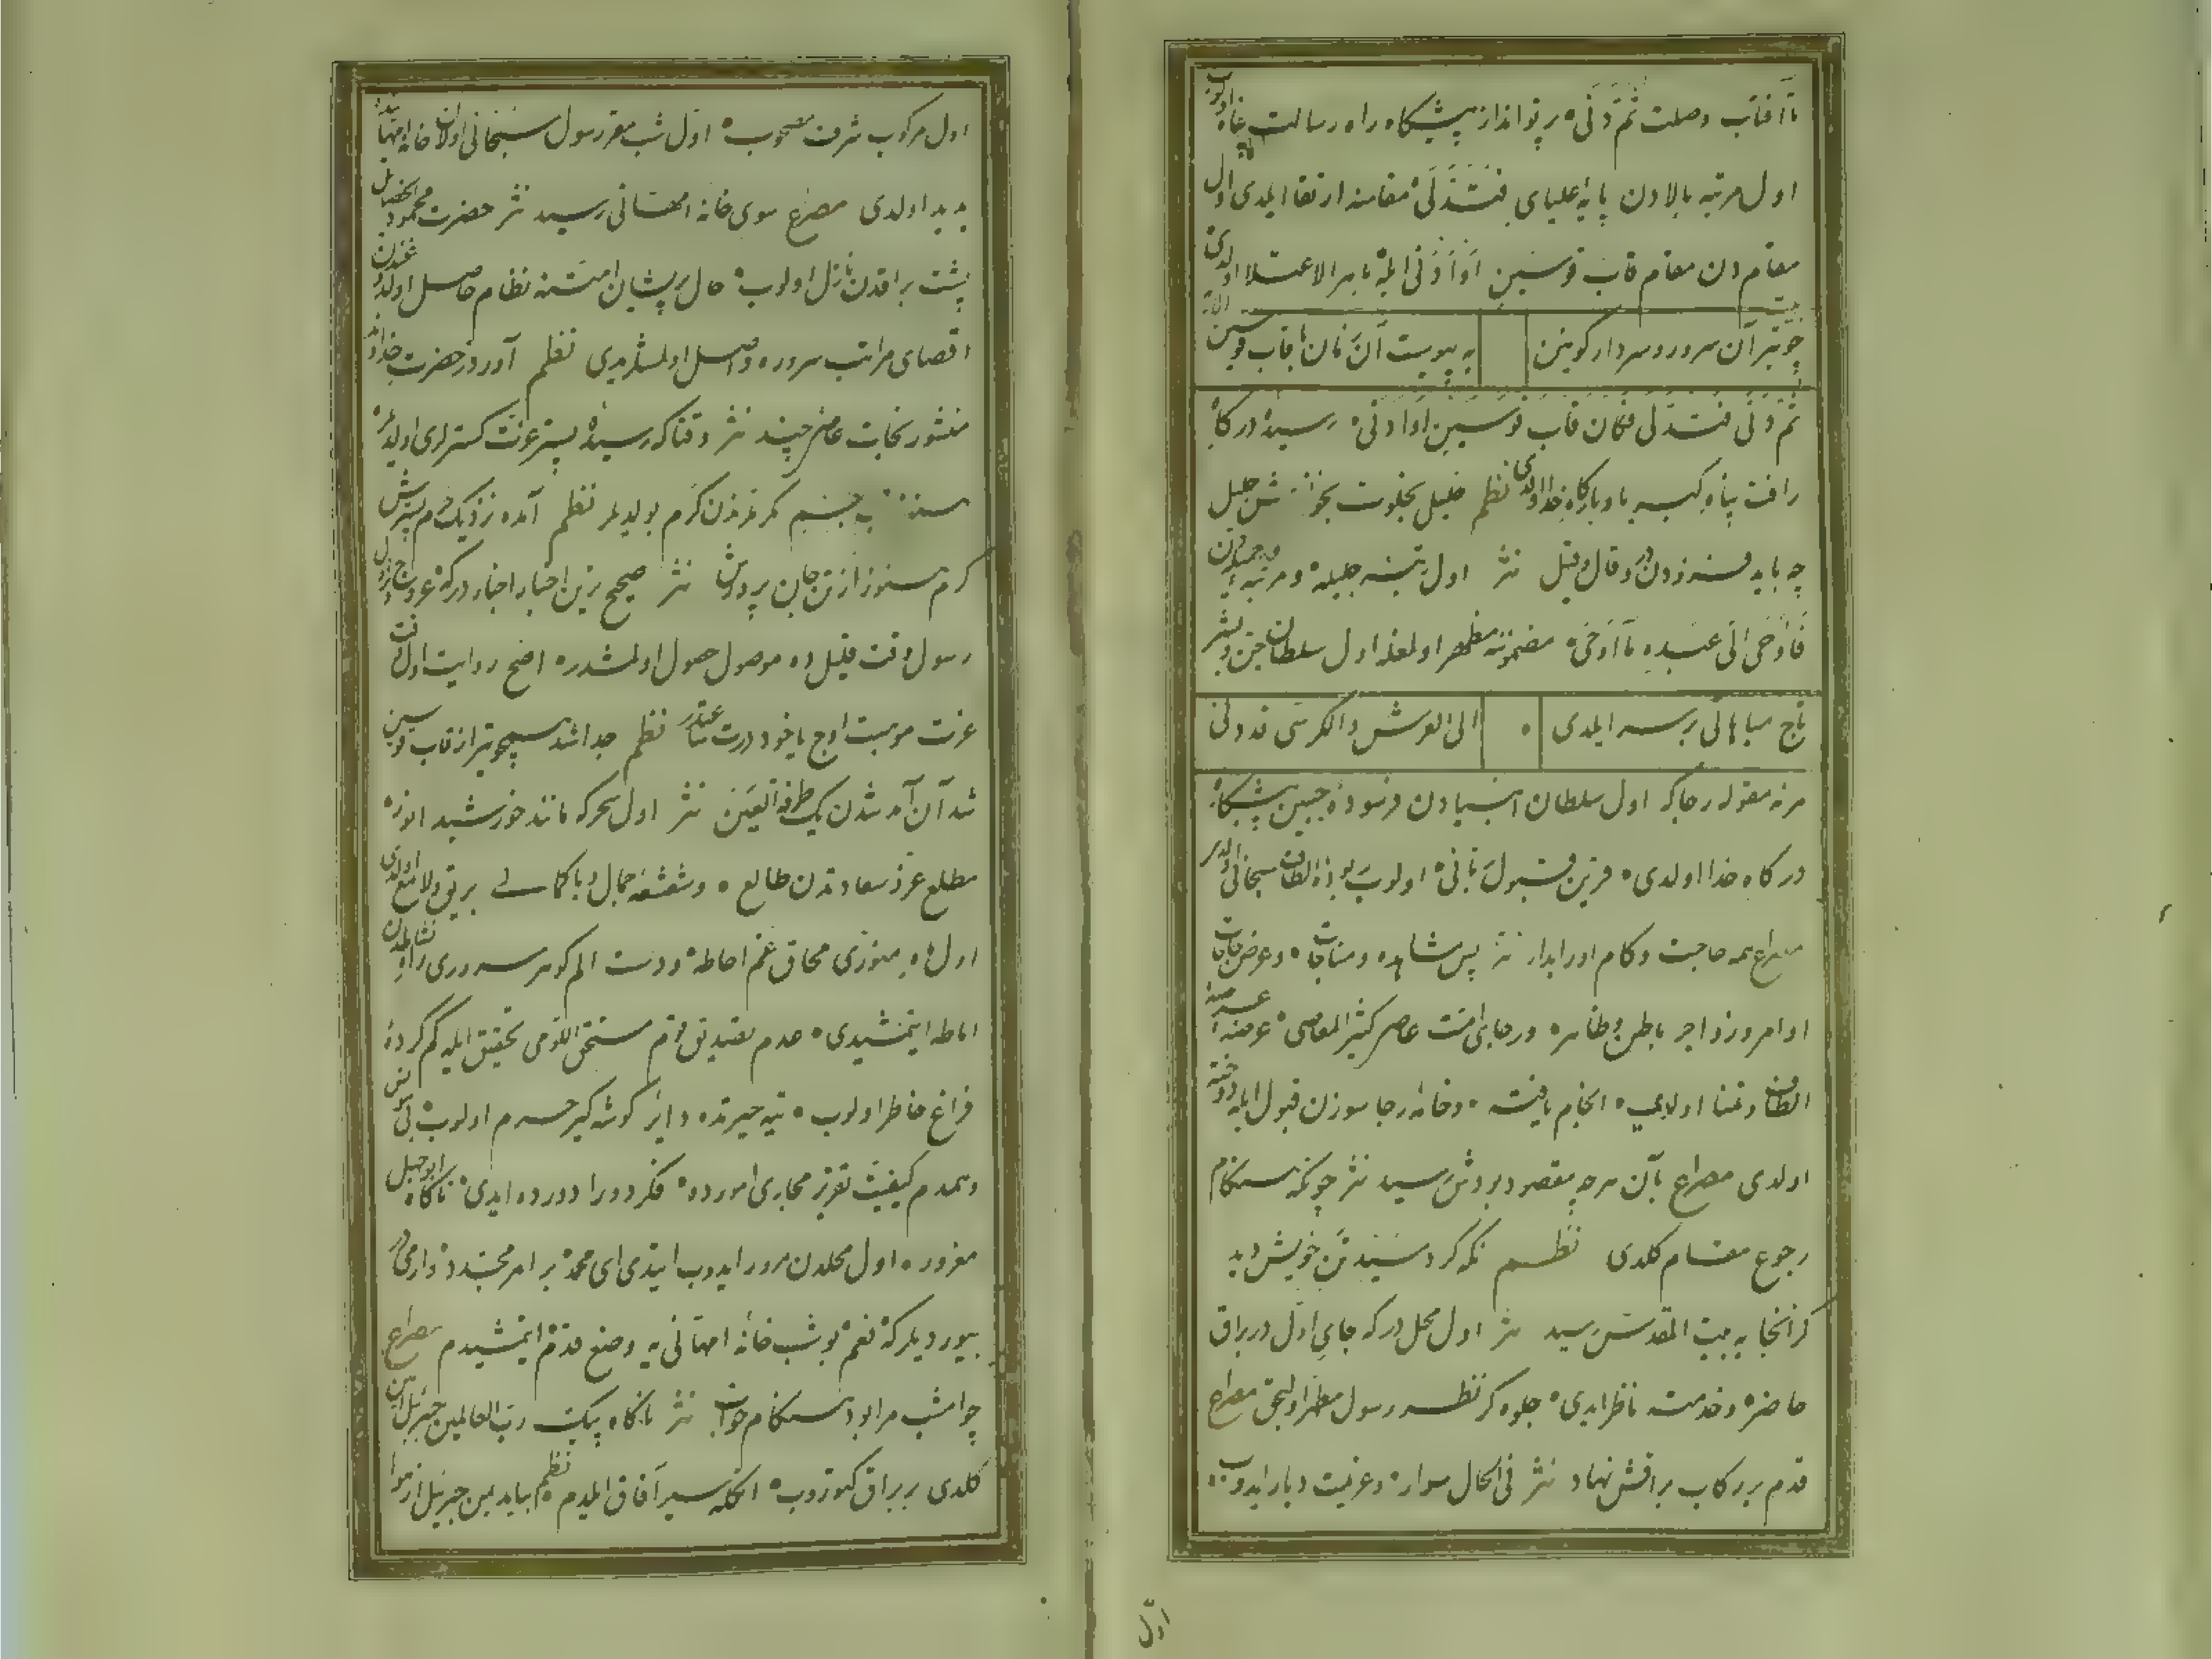 تا آفتاب وصلت ثم دنی پرتو انداز پیشکاه راه رسالت پناه اولوب
اول مرتبه بالادن پایه علیای فتدلی مقامنه ارتقا ایلدی اول
مقام دن مقام قاب قوسین او ادنی ایله باهر الاعتلا اولدی
چو تیر آن سرور و سردار کونین به پیوست آن زمان با قاب قوسین
ثم دنی فتدلی فکان قاب قوسین او ادنی رسیده درکاه
رافت پناه کبریا و بارکاه خدا اولدی نظم خلیل بخلوت بخواند جلیل
چه باید فسردن و قال و قیل نثر اول رتبه جلیله و مرتبه
فاوحی الی عبده ما اوحی مضموننه مظهر اولمغله اول سلطان جن و بشر
تاج مباهاتی بر سر ایلدی الی العرش والکرسی قد دنی
هر نه مقوله رجا که اول سلطان انبیادن فرسوده جبین پیشکاه
درکاه خدا اولدی قرین قبول ربانی اولوب الطاف سبحانی اولدیلر
مصراع همه حاجت و کام اورا بداد نثر پس مشاهده و مناجات و عرض حاجات
اوامر و زواجر باطن و ظاهره و رجای امت عاصر کثیر المعاصی عرضه
الطاف و تمنا اولایی انجام یافته و خانه رجا سوزن قبول ایله دوخته
اولدی مصراع بآن هر چه مقصود بودش رسید نثر چونکه هنکام
رجوع مقام کلدی نظم نکه کرد سید تن خویش دید
کز آنجا به بیت المقدس رسید نثر اول محل درکه جای اول در براق
حاضر و خدمته ناظر ایدی جلوه کر نظر رسول مطهر اولیجق مصراع
قدم بر رکاب براقش نهاد نثر فی الحال سواره و عزیمت دیار ایدوب
اول
اول مرکوب شرف مصحوب اول شب مقر رسول سبحانی اولان خانه امهانی
بدید اولدی مصرع سوی خانه امهانی رسید نثر حضرت محمود الخصایل
پشت براقدن نازل اولوب حال پریشان امتنه نظام حاصل اولدی
اقصای مراتب سروره واصل اولمشلر ایدی نظم آورد ز حضرت خداوند
منشور نجات عاصی چند نثر وقتا که رسیده بستر عزت کسترلری اولدیلر
کرمتر دن کرم بولدیلر نظم آمده نزدیک حرم بسترش
کرم هنوز از تن جان پرورش نثر صحیح ترین اخبار اخبار درکه عروج و نزول
رسول وقت قلیل ده موصول حصول اولمشدر اصح روایت اول وقت
عزت موهبت اوج یاخود درت ساعتدر نظم جدا شد همچو تیر از قاب قوسین
شد آن آمد شدن یک طرفة العین نثر اول سحر که مانند خورشید انور
مطلع عز و سعادتدن طالع و شعشعه جمال با کمال بریق و لامع اولدی
اول ماه منوری محاق غم احاطه و دست الم کوهر سروری راه نشاطدن
اماطه ایتمشیدی عدم تصدیق قوم مستحق اللومی تحقیق ایله کم کرده
فراغ خاطر اولوب تیه حیرتده دائر کوشه کیر حرم اولوب بی کس
و همدم کیفیت تقریر مجاری اموردہ فکر دور ادور ده ایدی ناکاه ابوجهل
مغرور اول محلدن مرور ایدوب ایتدی ای محمد بر امر مجدد وارمی در
بیوردیلر که نعم بو شب خانه امهانی یه وضع قدم ایتمشیدم مصراع
چو امشب مرا بود هنکام خواب نثر ناکاه پیک رب العالمین جبرئیل امین
کلدی بر براق کتوروب انکله سیر آفاق ایلدم نظم بیامد بمن جبرئیل از هوا